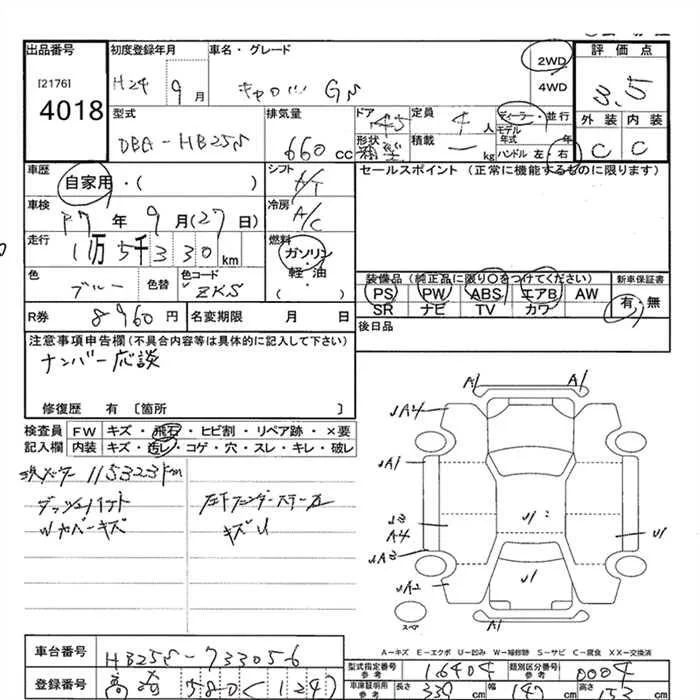 出品番号 初度登録年月 車名・グレード 2WD 評価点
[2176] H24 9月 キャロル GS 4WD 3.5
4018 型式 排気量 ドア 定員 ディーラー・並行 外装 内装
DBA-HB25S 660cc 4人 モデル年式 年 C C
形状 積載 kg ハンドル 左・右
車歴 シフト セールスポイント (正常に機能するものに限ります)
自家用・( ) A/T
車検 冷房
R7年9月(27日) A/C
走行 燃料
1万5千330km ガソリン
色 色替 色コード 軽油 装備品 (純正品に限り○をつけてください) 新車保証書
ブルー ZKS ( ) PS PW ABS エアB AW 有・無
SR ナビ TV カワ
R券 8960円 名変期限 月 日 後日品
注意事項申告欄(不具合内容等は具体的に記入して下さい)
ナンバー応談
修復歴 有 〔箇所 〕
検査員 FW キズ・飛石・ヒビ割・リペア跡・×要
記入欄 内装 キズ・汚レ・コゲ・穴・スレ・キレ・破レ
15323km
ダッシュ
Wカバーキズ キズU
A1 A1
A4
A1
A4 U1 U1
A3
A2 U1
A1
スペア
A−キズ E−エクボ U−凹み W−補修跡 S−サビ C−腐食 XX−交換済
車台番号 HB25S-733056
型式指定番号 参考 16404 類別区分番号 参考 0004
登録番号 580 く 1247 車庫証明用 参考 長さ 339cm 幅 147cm 高さ